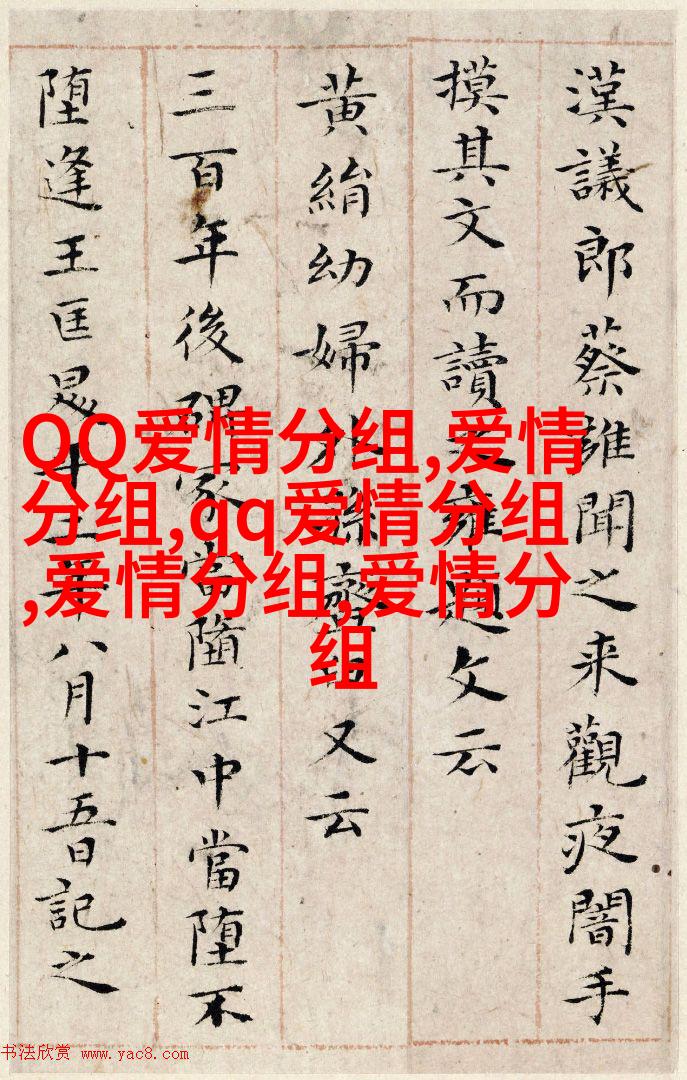 漢議郎蔡雝聞之来觀夜闇手
摸其文而讀之雍題文云
黃絹幼婦外孫又云
三百年後碑冢當墮江中當堕不
堕逢王匡昇平二年八月十五日記之
QQ爱情分组,爱情
分组,qq爱情分组
,爱情分组,爱情分
组
书法欣赏 www.yac8.com